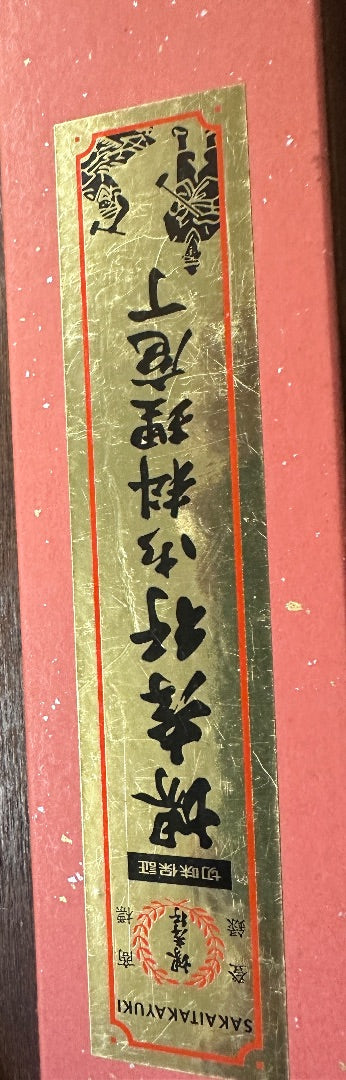 SAKAITAKAYUKI
登録
商標
堺孝行
切味保証
堺孝行の料理庖丁